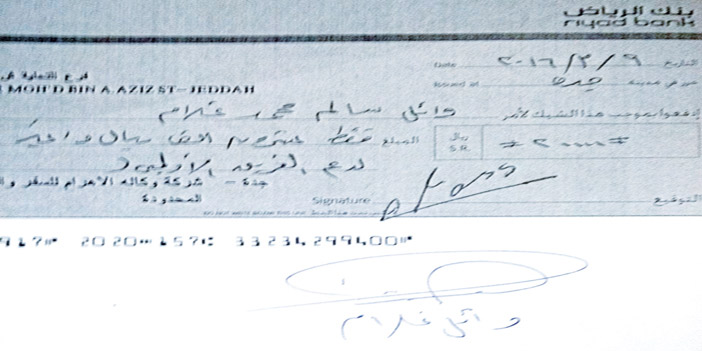 بنك الرياض
riyad bank
التاريخ ٢٠١٦/٣/٩ Date
MOH'D BIN A.AZIZ ST-JEDDAH
حرر في مدينة جدة Issued at
إدفعوا بموجب هذا الشيك لأمر وائل سالم محمد غلام
المبلغ فقط عشرون الف ريال لاغير ريال S.R. # ٢٠٠٠٠ #
لدعم الفريق الأولمبي
جدة - شركة وكالة الاهرام للسفر
المحدودة
Signature التوقيع
917 2020 157 33234299400
وائل غلام